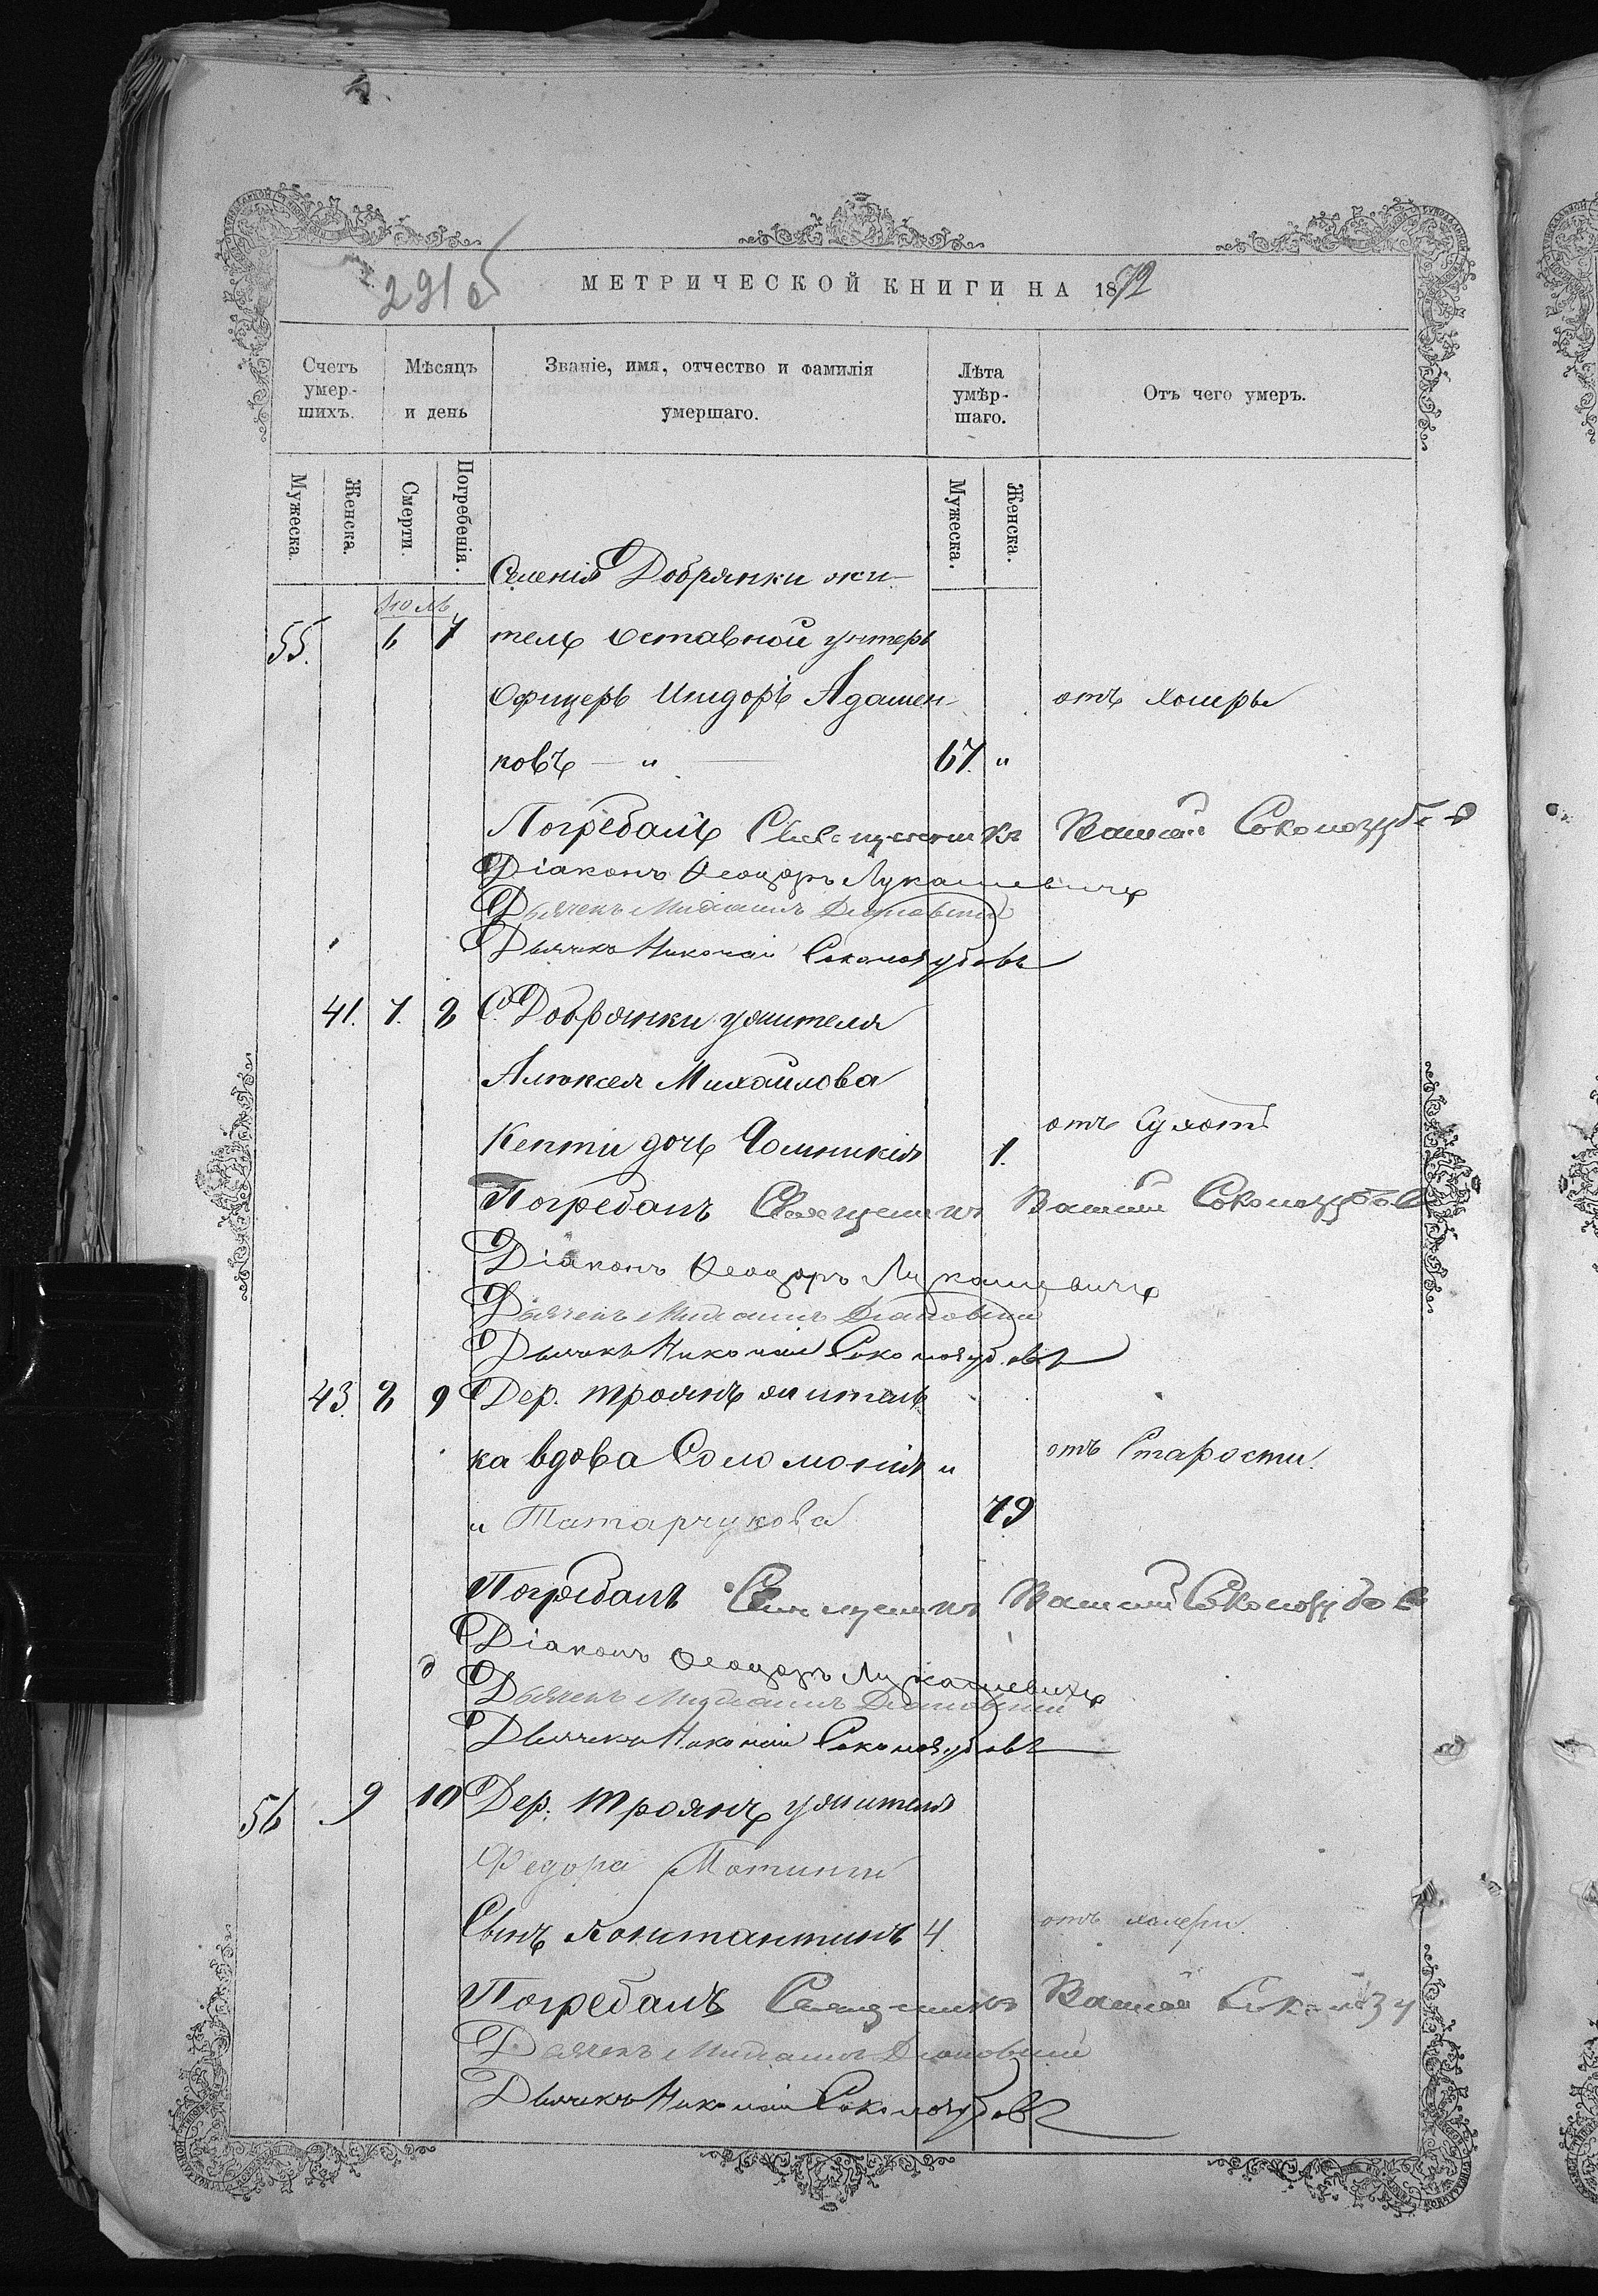 291 об
МЕТРИЧЕСКОЙ КНИГИ НА 1872
Счетъ умер-шихъ.
Мѣсяцъ и день
Званіе, имя, отчество и фамилія умершаго.
Лѣта умѣр-шаго.
Отъ чего умеръ.
Мужеска. Женска. Смерти. Погребенія. Мужеска. Женска.
Селенія Добрянки жи-
Іюль
55. 6 7 тель отставной унтеръ
Офицеръ Исидоръ Адамен- отъ холеры
ковъ — " — 67. "
Погребалъ Священникъ Василій Соколозубов
Діаконъ Ѳеодоръ Лукашевичъ
Дьячекъ Михаилъ
Дьячекъ Николай Соколозубовъ
41. 7. 8 С. Добрянки жителя
Алексея Михайлова
отъ Сухот
Кепти дочь 1.
Погребалъ Священникъ Василій Соколозубов
Діаконъ Ѳеодоръ Лукашевичъ
Дьячекъ Михаилъ
Дьячекъ Николай Соколозубовъ
43. 8 9 Дер. Троянъ житель
ка вдова Соломонія " отъ Старости.
" Татарчукова 79
Погребалъ Священникъ Василій Соколозубов
Діаконъ Ѳеодоръ Лукашевичъ
Дьячекъ Михаилъ
Дьячекъ Николай Соколозубовъ
56 9 10 Дер. Троянъ жителя
Федора
Сынъ Константинъ 4. отъ холеры
Погребалъ Священникъ Василій Соколозу
Дьячекъ Михаилъ
Дьячекъ Николай Соколозубовъ